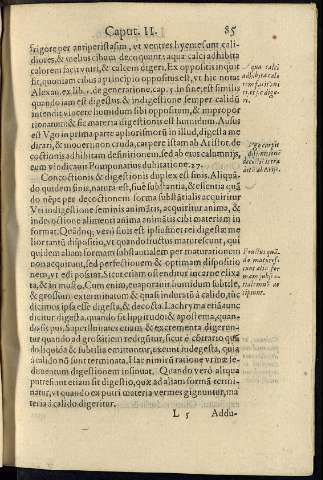 Caput. II. 85
frigore per antiperistasim, vt ventres hyeme sunt cali-
diores, & melius cibum decoquunt: aqua calci adhibita
calorem facit vniri, & calcem digeri. Ex oppositis inquit
fit, quoniam cibus à principio oppositus est, vt hîc notat
Alexan. ex lib. 1. de generatione. cap. 7. in fine, est similis
quando iam est digestus & indigestione semper calidũ
nutritur
humidum sibi oppositum, & impropor
tionatum & sic materia digestionis est humidum. Ausus
est Vgo in prima aphorismorũ in illud, digesta me
dicari, & mouere non cruda, carpere istam ab Aristot. de
coctionis adhibitam definitionem, sed ab eius calumnijs,
eum vindicauit Pomponatius dubitatione. 27.
Concoctionis & digestionis duplex est finis. Aliquã-
do quidem finis, natura est, siuè substantia, & essentia quã
do nẽpe per decoctionem forma substãtialis acquiritur
Vt in digestione seminis animãtis, acquiritur anima, &
in digestione alimenti anima animãtis cibi materiam in
format. Quãdoq; verò finis est ipsiusmet rei digestæ me
lior tantũ dispositio, vt quando fructus maturescunt, qui
quidem aliam formam substantialem per maturationem
non acquirunt, sed perfectiorem & optimam dispositio
nem, vt edi possint. Sic etiam ostenditur in carne elixa
ta, & in musto. Cum enim, euaporauit humidum subtile,
& grossum exterminatum & quasi induratũ à calido, tũc
dicimus ipsa esse digesta, & decocta. Lachryma etiã tunc
dicitur digesta, quando fit lippitudo: & apostema, quan-
do fit pus. Superfluitates etiam & excrementa digerun-
tur quando ad grossitiem rediguntur, sicut è cõtrario quã
do liquida & subtilia euomuntur, exeunt indigesta, quia
à calido nõ sunt terminata. Hac nimirũ ratione vrinæ le-
dementum digestionem insinuat. Quando verò aliqua
putrescunt etiam fit digestio, quæ ad aliam formã termi-
natur, vt quando ex putri materia vermes gignuntur, ma
teria à calido digeritur.
L 5 Addu-
Aqua calci
adhibita calo
rem facit vni
ri, & calcẽ dige-
ri.
Vgo carpit
definitionẽ
decoctionis tra
ditã ab Arist.
Fructus quã-
do matures-
cunt aliã for-
mam substã-
tialem nõ ac
cipiunt.